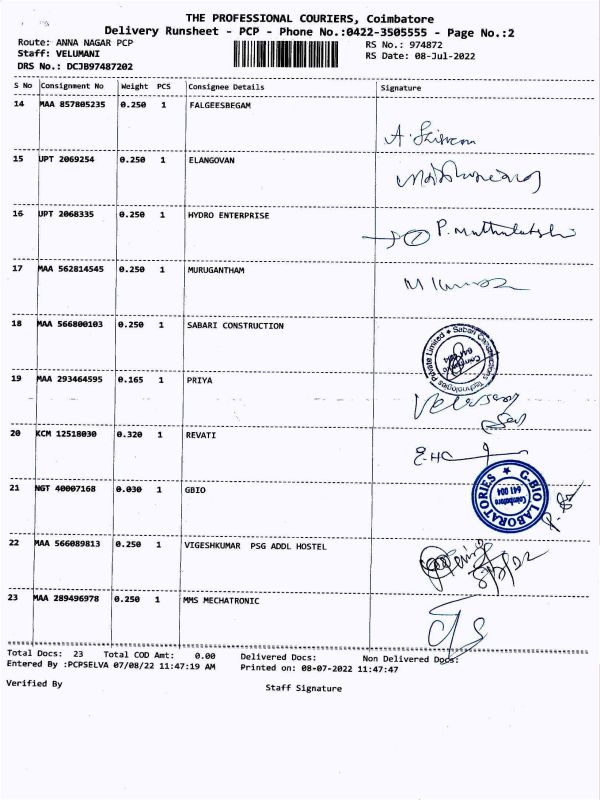 THE PROFESSIONAL COURIERS, Coimbatore
Delivery Runsheet - PCP - Phone No.:0422-3505555 - Page No.:2
Route: ANNA NAGAR PCP
RS No.: 974872
Staff: VELUMANI
RS Date: 08-Jul-2022
DRS No.: DCJB97487202
S No Consignment No Weight PCS Consignee Details Signature
14 MAA 857805235 0.250 1 FALGEESBEGAM
15 UPT 2069254 0.250 1 ELANGOVAN
16 UPT 2068335 0.250 1 HYDRO ENTERPRISE
P. Muthulakshi
17 MAA 562814545 0.250 1 MURUGANTHAM
18 MAA 566800103 0.250 1 SABARI CONSTRUCTION
Sabari Constructions Technologies Private Limited
19 MAA 293464595 0.165 1 PRIYA
20 KCM 12518030 0.320 1 REVATI
21 NGT 40007168 0.030 1 GBIO
G-BIO LABORATORIES
Coimbatore
641 004
22 MAA 566089813 0.250 1 VIGESHKUMAR PSG ADDL HOSTEL
23 MAA 289496978 0.250 1 MMS MECHATRONIC
Total Docs: 23 Total COD Amt: 0.00 Delivered Docs: Non Delivered Docs:
Entered By :PCPSELVA 07/08/22 11:47:19 AM Printed on: 08-07-2022 11:47:47
Verified By
Staff Signature